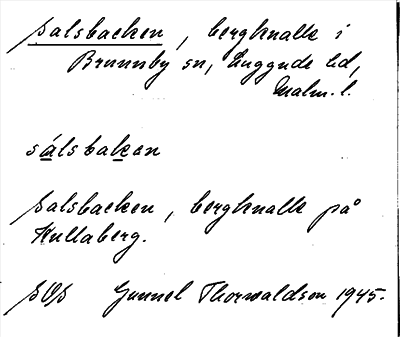 Salsbacken, bergknalle i
Brunnby sn, Luggude hd,
Malm. l.
sálsbakan
Salsbacken, bergknalle på
Kullaberg.
SOS Gunnel Thorwaldson 1945.